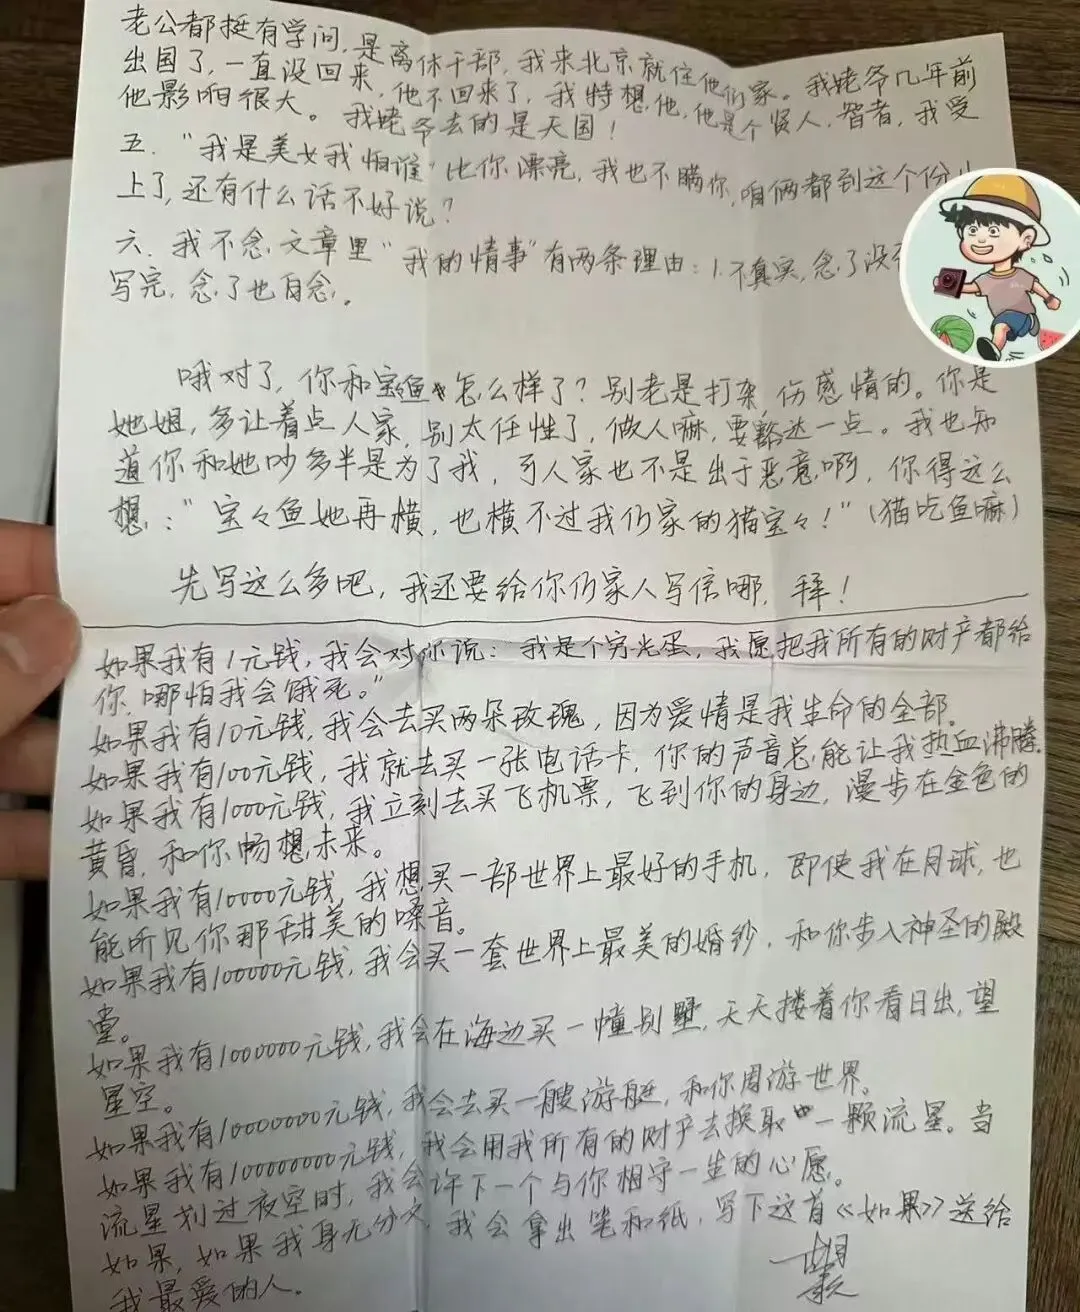 老公都挺有学问，是离休干部，我来北京就住他们家。我姥爷几年前
出国了，一直没回来，他不回来了，我特想他，他是个贤人，智者，我受
他影响很大。我姥爷去的是天国！
五．“我是美女我怕谁”比你漂亮，我也不瞒你，咱俩都到这个份儿
上了，还有什么话不好说？
六．我不念，文章里“我的情事”有两条理由：1．不真实，念了没
写完，念了也白念。
哦对了，你和宝鱼怎么样了？别老是打架，伤感情的。你是
她姐，多让着点人家，别太任性了，做人嘛，要豁达一点。我也知
道你和她吵多半是为了我，可人家也不是出于恶意啊，你得这么
想：“宝々鱼她再横，也横不过我们家的猫宝々！”（猫吃鱼嘛）
先写这么多吧，我还要给你们家人写信哪，拜！
如果我有1元钱，我会对你说：我是个穷光蛋，我愿把我所有的财产都给
你，哪怕我会饿死。”
如果我有10元钱，我会去买两朵玫瑰，因为爱情是我生命的全部。
如果我有100元钱，我就去买一张电话卡，你的声音总能让我热血沸腾。
如果我有1000元钱，我立刻去买飞机票，飞到你的身边，漫步在金色的
黄昏，和你畅想未来。
如果我有10000元钱，我想买一部世界上最好的手机，即使我在月球，也
能听见你那甜美的嗓音。
如果我有100000元钱，我会买一套世界上最美的婚纱，和你步入神圣的殿
堂。
如果我有1000000元钱，我会在海边买一幢别墅，天天搂着你看日出，望
星空。
如果我有10000000元钱，我会去买一艘游艇，和你周游世界。
如果我有100000000元钱，我会用我所有的财产去换取一颗流星。当
流星划过夜空时，我会许下一个与你相守一生的心愿。
如果，如果我身无分文，我会拿出笔和纸，写下这首《如果》送给
我最爱的人。